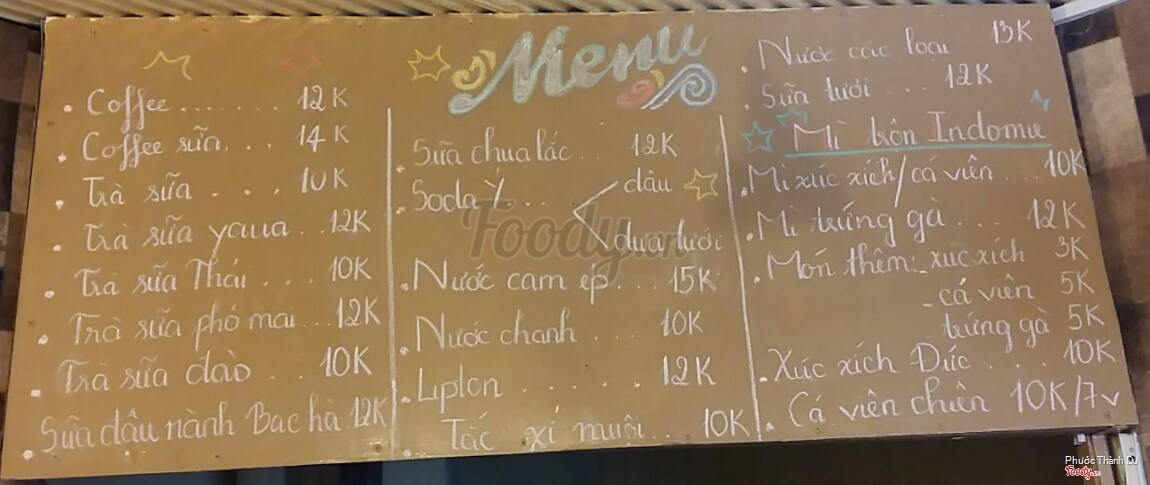 Menu
Coffee ....... 12K
Coffee sữa... 14K
Trà sữa .... 10K
Trà sữa yaua .. 12K
Trà sữa Thái ... 10K
Trà sữa phô mai ... 12K
Trà sữa đào ... 10K
Sữa đậu nành Bạc hà 12K
Sữa chua lắc .. 12K
Soda Ý ... dâu
dưa lưới
Nước cam ép ... 15K
Nước chanh ... 10K
Lipton ..... 12K
Tắc xí muội .. 10K
Nước các loại 13K
Sữa tươi ... 12K
Mì trộn Indomie
Mì xúc xích/cá viên ... 10K
Mì trứng gà ... 12K
Món thêm: xúc xích 3K
- cá viên 5K
trứng gà 5K
Xúc xích Đức ... 10K
Cá viên chiên 10K/7v
Foody.vn
Phước Thành DJ
Foody.vn